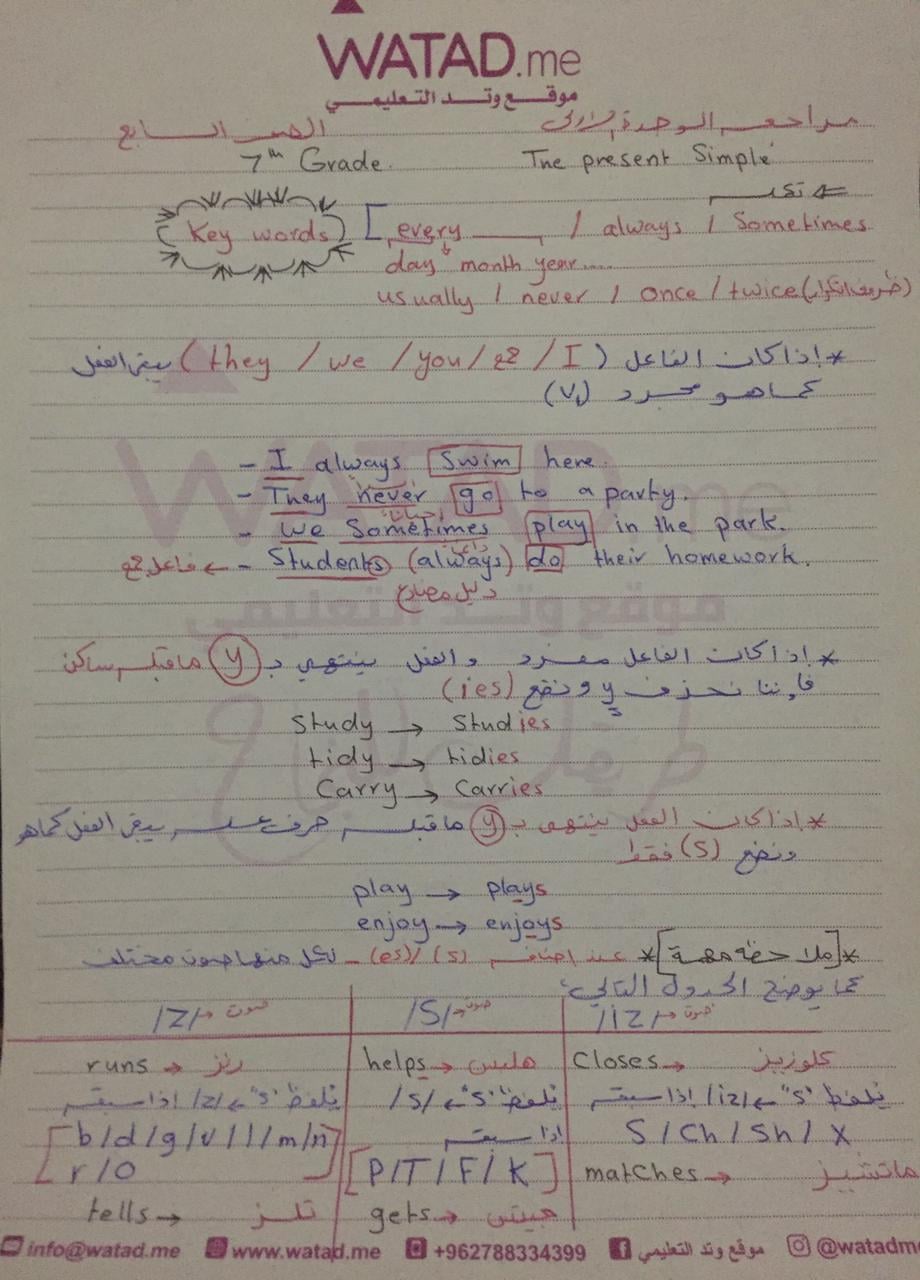 WATAD.me
موقع وتد التعليمي
مراجعة الوحدة الأولى الصف السابع
7th Grade. The present Simple
Key words [ every ____ / always / Sometimes
day month year....
usually / never / once / twice (ظروف التكرار)
* إذا كان الفاعل (they / we / you / جمع / I) يبقى الفعل
كما هو مجرد (V1)
- I always Swim here.
- They never go to a party.
أحياناً
- We Sometimes play in the park.
دائماً
- Students (always) do their homework. ← فاعل جمع
دليل مضارع
موقع وتد التعليمي
* إذا كان الفاعل مفرد والفعل ينتهي بـ (y) ما قبله ساكن
فإننا نحذف y ونضع (ies)
Study → Studies
tidy → tidies
Carry → Carries
* إذا كان الفعل ينتهي بـ (y) ما قبله حرف علة يبقى الفعل كما هو
ونضع (S) فقط
play → plays
enjoy → enjoys
* [ملاحظة مهمة] * عند إضافة (s) / (es) - لكل منها صوت مختلف
كما يوضح الجدول التالي:
صوت → /iz/ صوت → /S/ صوت → /z/
Closes → كلوزيز
يُلفظ "s" ← /iz/ إذا سبقه
S / Ch / Sh / X
matches → ماتشيز
helps → هلبس
يُلفظ "s" ← /S/
إذا سبقه
[P/T/F/K]
gets → جيتس
runs → رنز
يُلفظ "s" ← /z/ إذا سبقه
[b/d/g/v/l/m/n
r/o]
tells → تلز
info@watad.me www.watad.me +962788334399 موقع وتد التعليمي @watadme